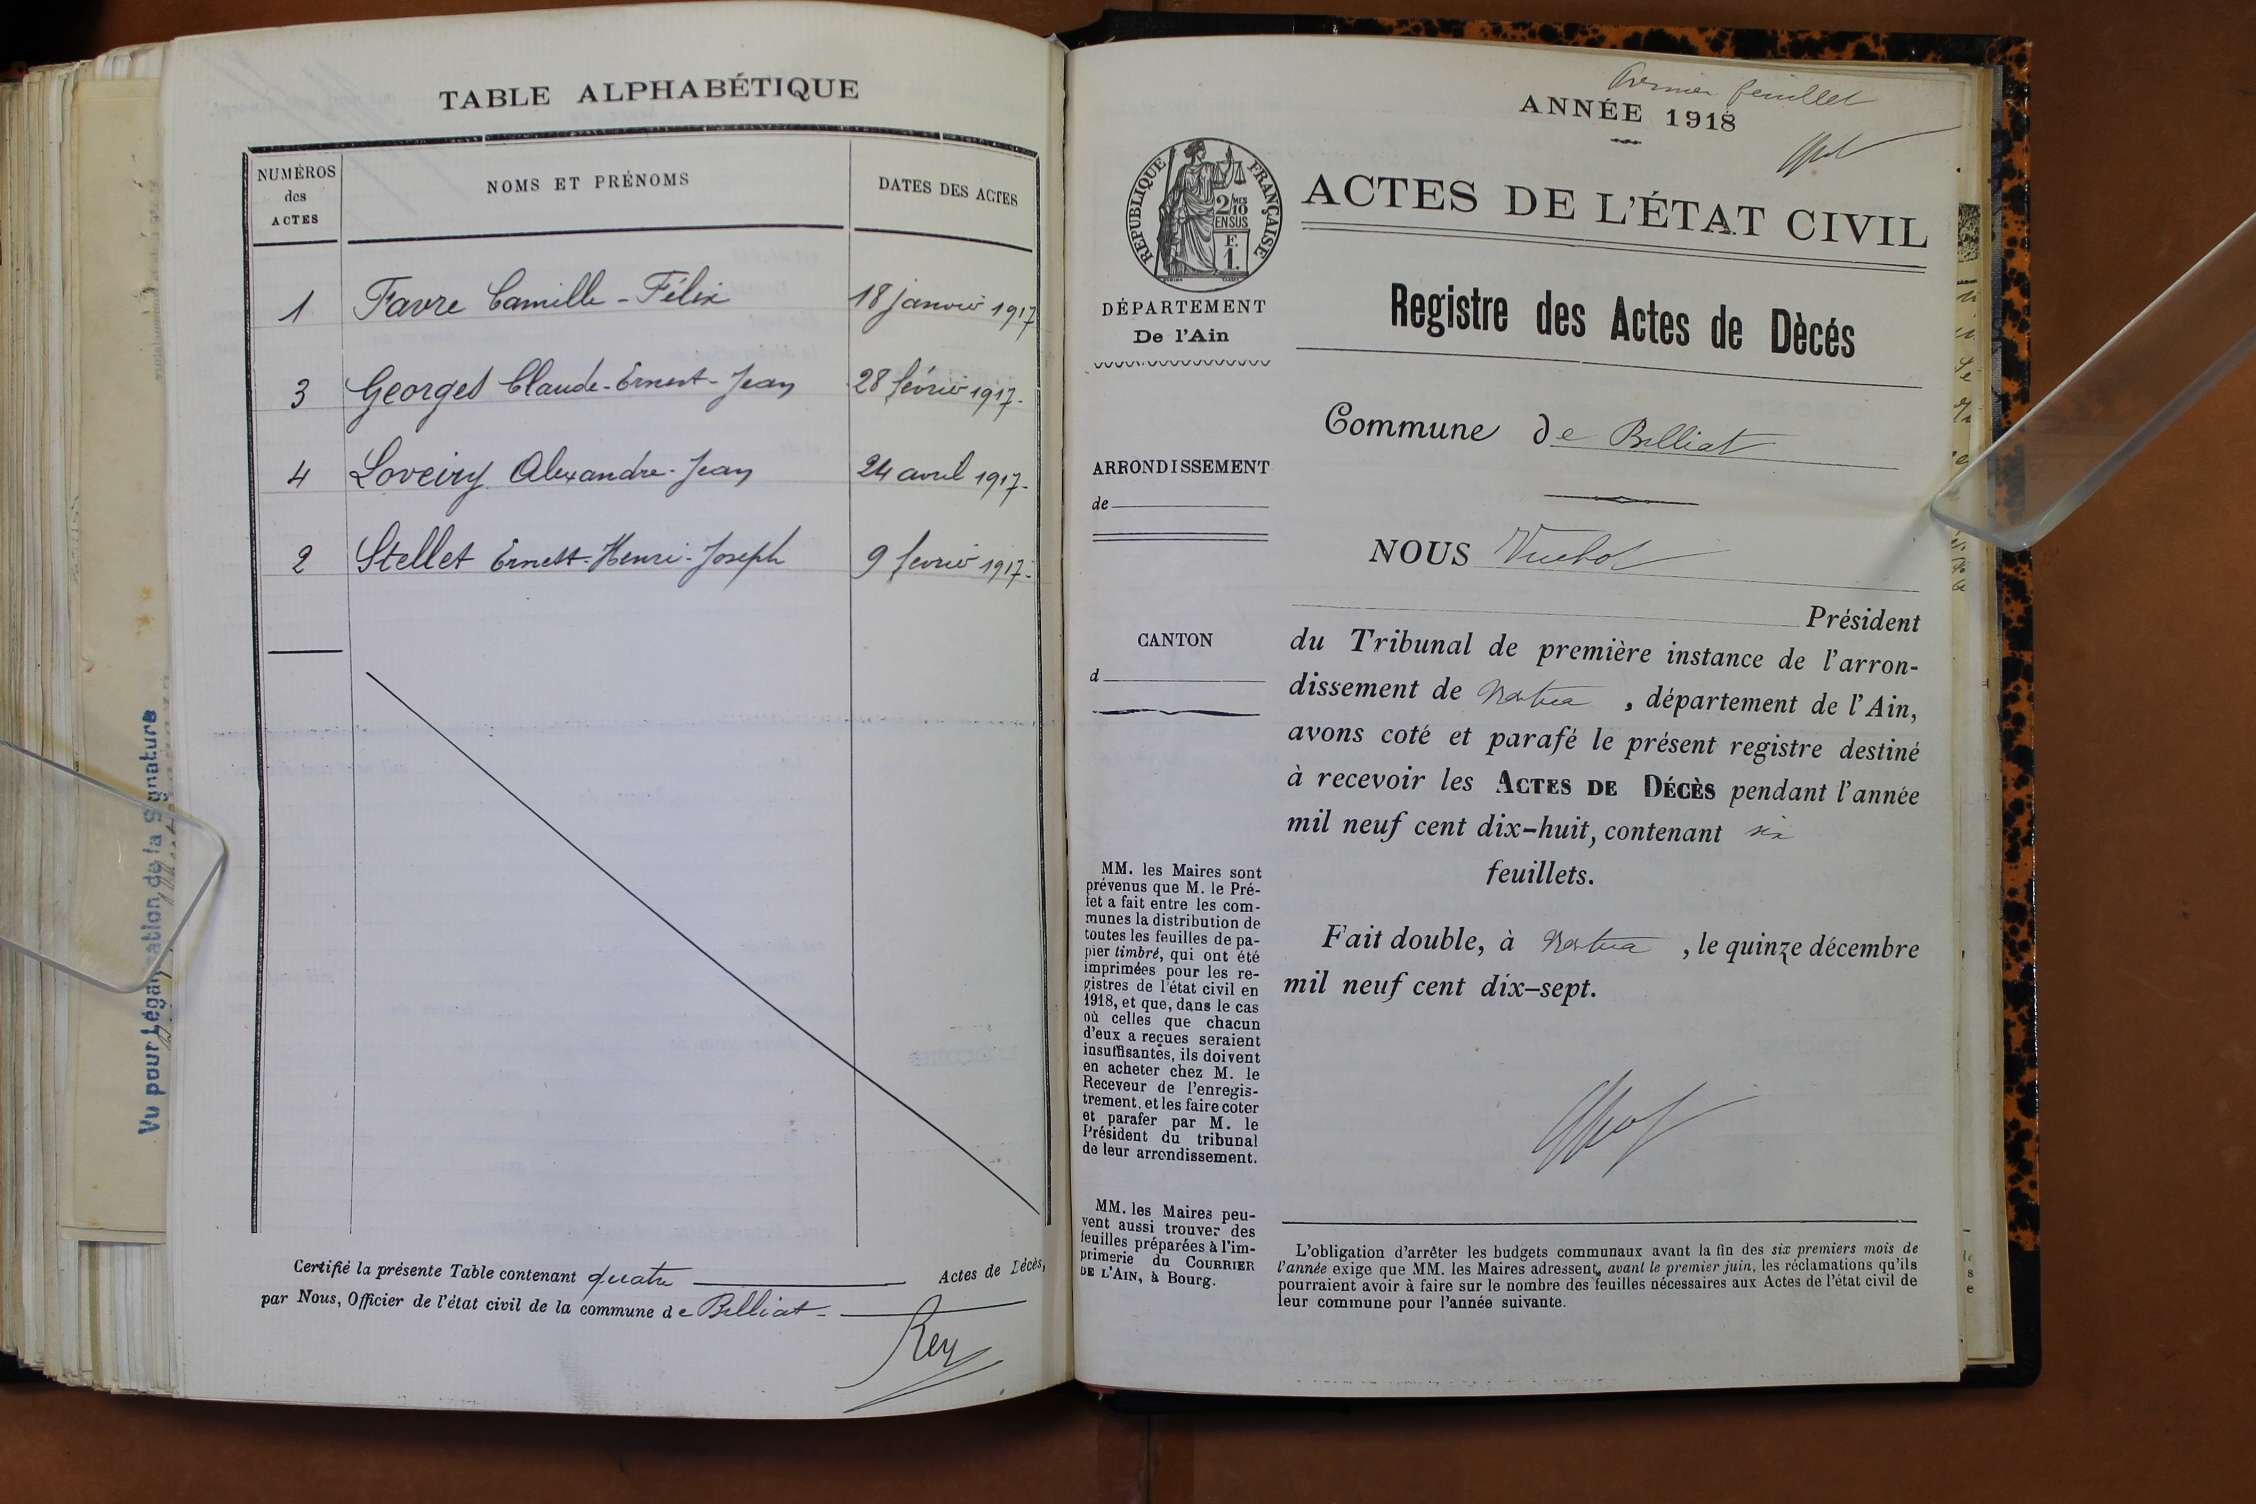 TABLE ALPHABÉTIQUE
NUMÉROS
des
ACTES
NOMS ET PRÉNOMS
DATES DES ACTES
1 Favre Camille-Félix 18 janvier 1917
3 Georges Claude-Ernest-Jean 28 février 1917.
4 Loveiry Alexandre-Jean 24 avril 1917.
2 Stellet Ernest-Henri-Joseph 9 fevrier 1917.
Certifié la présente Table contenant quatre Actes de Décès,
par Nous, Officier de l'état civil de la commune de Billiat
Rey
Vu pour Légalisation de la Signature
Premier feuillet
ANNÉE 1918
RÉPUBLIQUE FRANÇAISE
2/10
MES
EN SUS
F.
1.
ACTES DE L'ÉTAT CIVIL
DÉPARTEMENT
De l'Ain
Registre des Actes de Dècés
Commune de Billiat
ARRONDISSEMENT
de
NOUS
Président
CANTON
d
du Tribunal de première instance de l'arron-
dissement de Nantua, département de l'Ain,
avons coté et parafé le présent registre destiné
à recevoir les ACTES DE DÉCÈS pendant l'année
mil neuf cent dix-huit, contenant six
feuillets.
Fait double, à Nantua, le quinze décembre
mil neuf cent dix-sept.
MM. les Maires sont
prévenus que M. le Pré-
fet a fait entre les com-
munes la distribution de
toutes les feuilles de pa-
pier timbré, qui ont été
imprimées pour les re-
gistres de l'état civil en
1918, et que, dans le cas
où celles que chacun
d'eux a reçues seraient
insuffisantes, ils doivent
en acheter chez M. le
Receveur de l'enregis-
trement, et les faire coter
et parafer par M. le
Président du tribunal
de leur arrondissement.
MM. les Maires peu-
vent aussi trouver des
feuilles préparées à l'im-
primerie du COURRIER
DE L'AIN, à Bourg.
L'obligation d'arrêter les budgets communaux avant la fin des six premiers mois de
l'année exige que MM. les Maires adressent, avant le premier juin, les réclamations qu'ils
pourraient avoir à faire sur le nombre des feuilles nécessaires aux Actes de l'état civil de
leur commune pour l'année suivante.